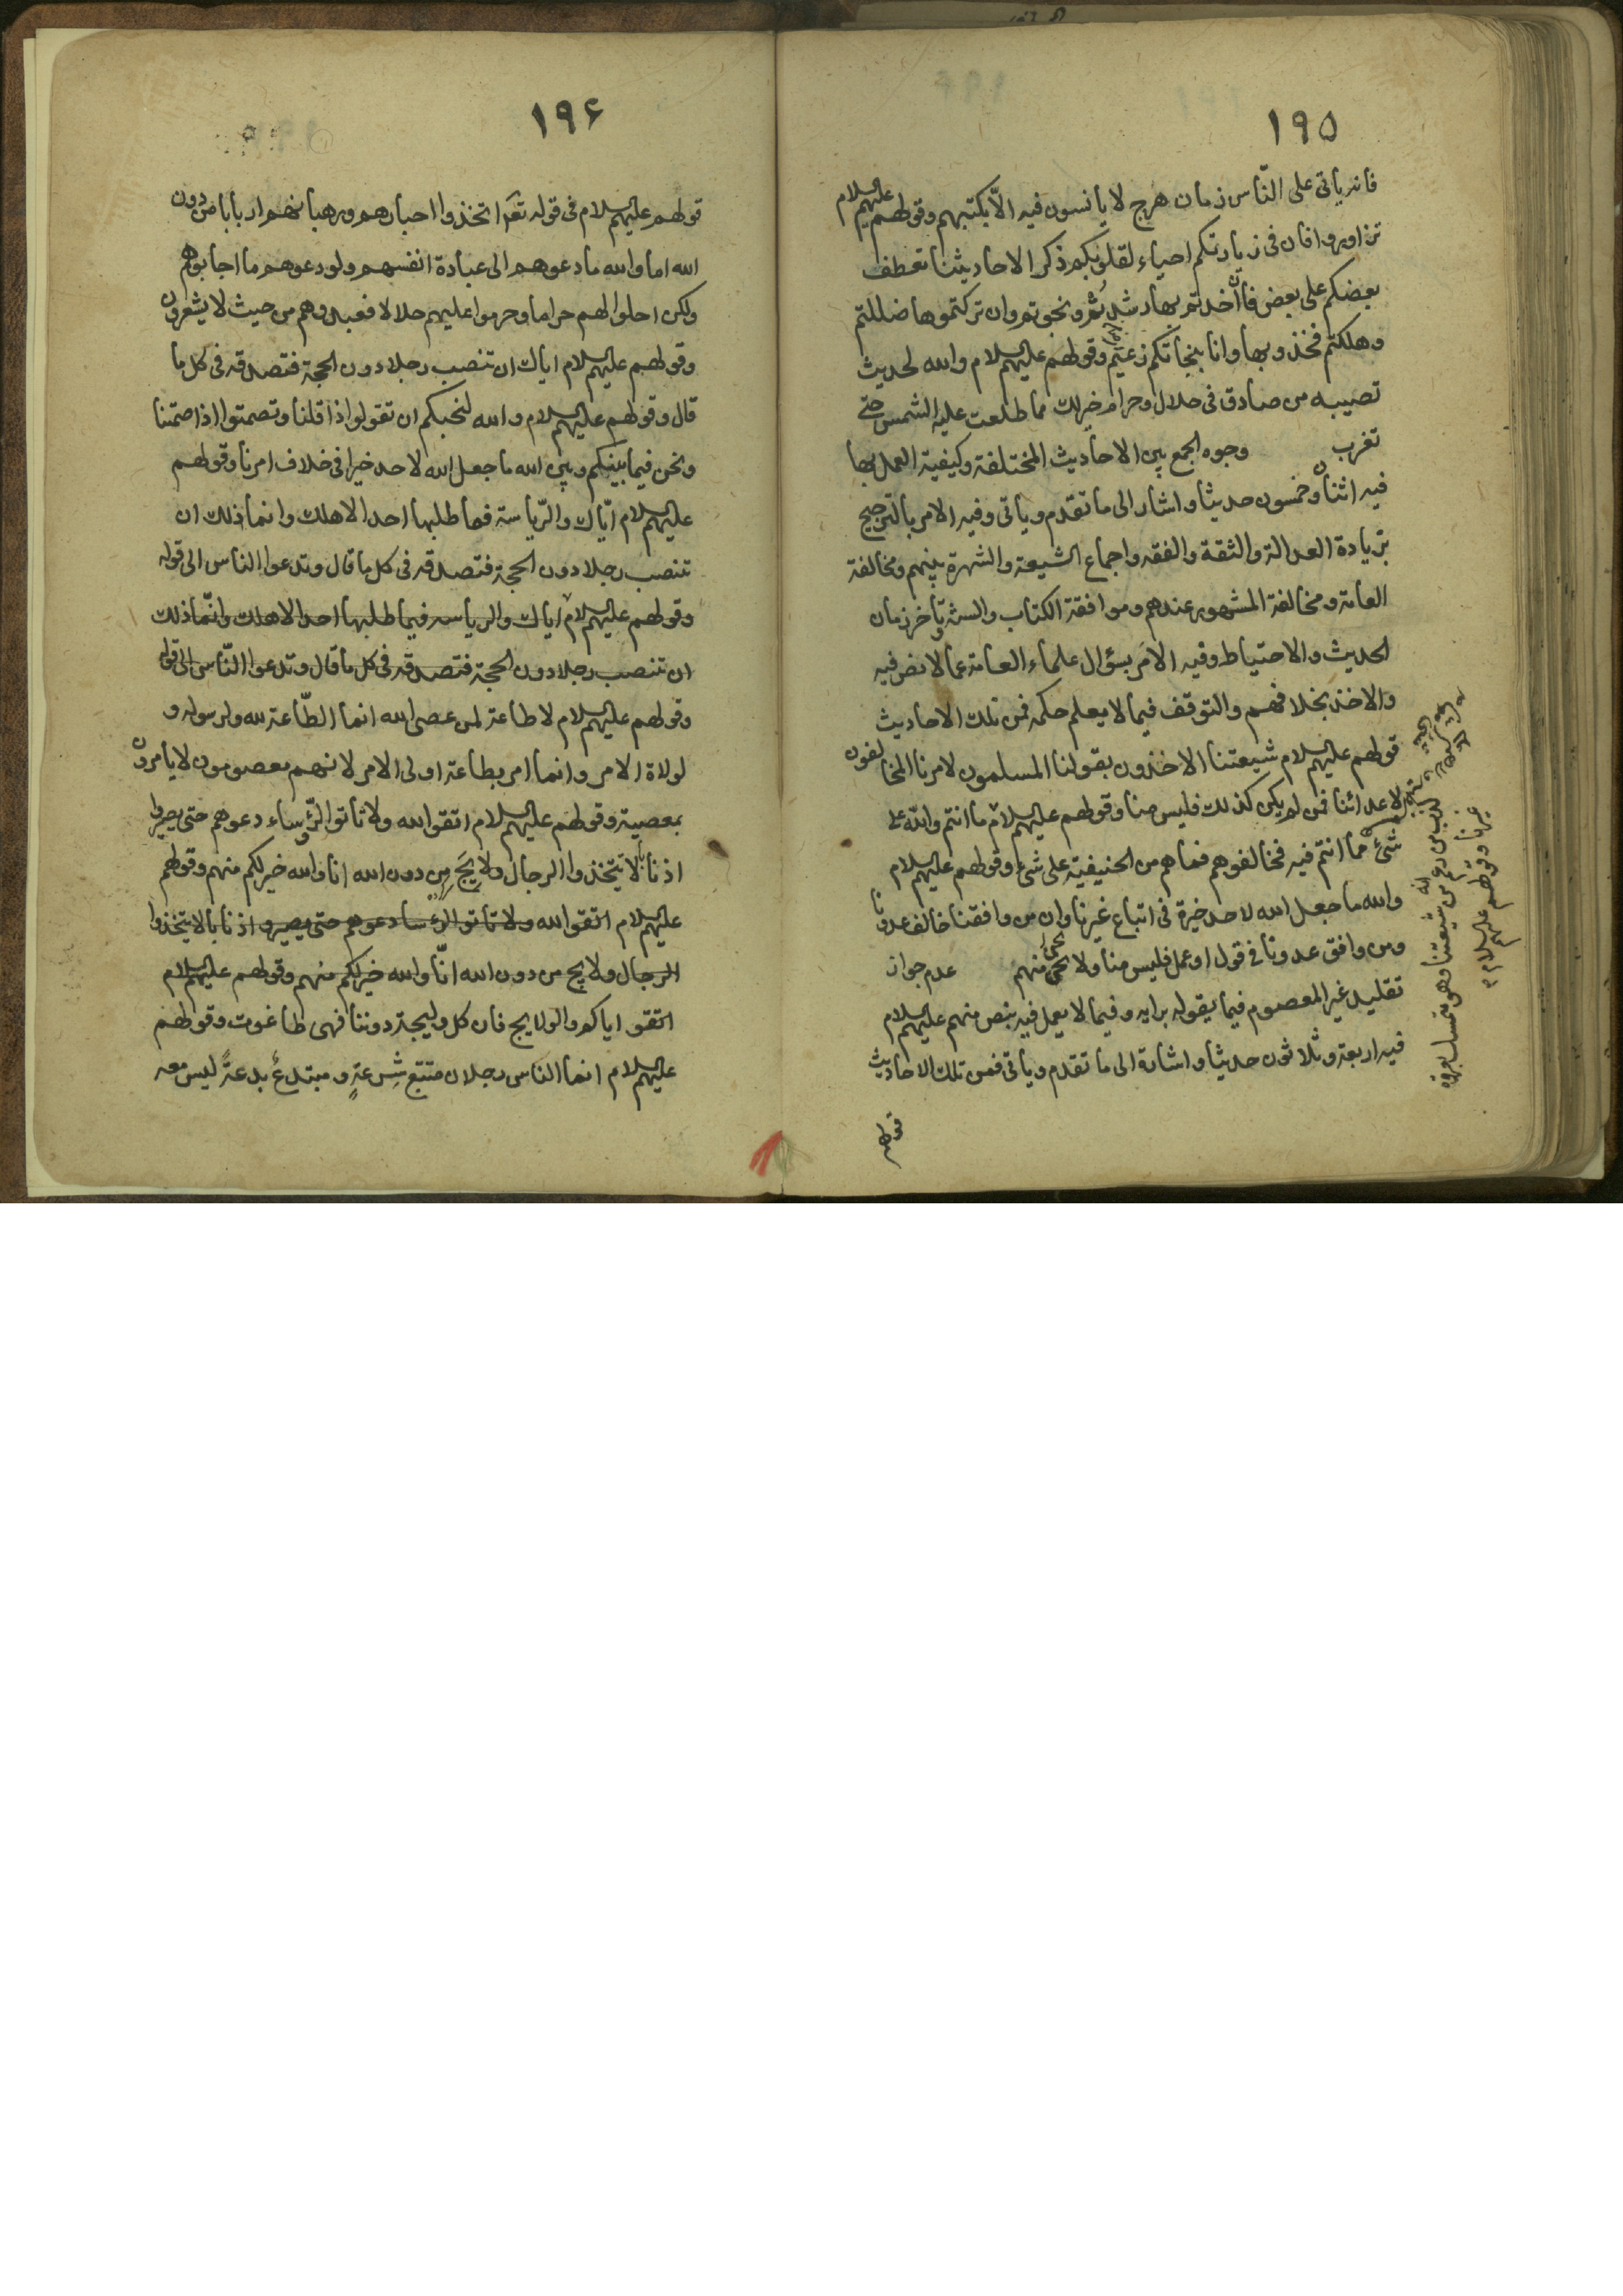 ١٩٥
فانه ياتى على النّاس زمان هرج لا يانسون فيه الّا بكتبهم وقولهم عليهم السلام
تزاوروا فان فى زيارتكم احياء لقلوبكم وذكرا لاحاديثنا تعطف
بعضكم على بعض فان اخذتم بها رشدتم ونجوتم وان تركتموها ضللتم
وهلكتم فخذوا بها وانا بنجاتكم زعيم وقولهم عليهم السلام والله لحديث
تصيبه من صادق فى حلال وحرام خير لك مما طلعت عليه الشمس حتى
تغرب وجوه الجمع بين الاحاديث المختلفة وكيفية العمل بها
فيه اثنان وخمسون حديثا واشار الى ما تقدم وياتى وفيه الامر بالترجيح
بزيادة العدالة والثقة والفقه واجماع الشيعة والشهرة بينهم ومخالفة
العامة ومخالفة المشهور عندهم وموافقة الكتاب والسنة وتاخر زمان
الحديث والاحتياط وفيه الامر بسؤال علماء العامة عما لا نص فيه
والاخذ بخلافهم والتوقف فيما لا يعلم حكمه فمن تلك الاحاديث
قولهم عليهم السلام شيعتنا الاخذون بقولنا المسلمون لامرنا المخالفون
لاعدائنا فمن لم يكن كذلك فليس منا وقولهم عليهم السلام ما انتم والله على
شئ مما انتم فيه فخالفوهم فماهم من الحنيفية على شئ وقولهم عليهم السلام
والله ما جعل الله لاحد خيرة فى اتباع غيرنا وان من وافقنا خالف عدونا
ومن وافق عدونا فى قول او عمل فليس منا ولا نحن منهم عدم جواز
تقليد غير المعصوم فيما يقوله برايه وفيما لا يعمل فيه بنص منهم عليهم السلام
فيه اربعة وثلاثون حديثا واشارة الى ما تقدم وياتى فمن تلك الاحاديث
قولهم
من شيعتنا وهو متمسك بعروة
غيرنا وقولهم عليهم السلام
١٩۶
قولهم عليهم السلام فى قوله تعم اتخذوا احبارهم ورهبانهم اربابا من دون
الله اما والله ما دعوهم الى عبادة انفسهم ولو دعوهم ما اجابوهم
ولكن احلوا لهم حراما وحرموا عليهم حلالا فعبدوهم من حيث لا يشعرون
وقولهم عليهم السلام اياك ان تنصب رجلا دون الحجة فتصدقه فى كل ما
قال وقولهم عليهم السلام والله لنحبكم ان تقولوا اذا قلنا وتصمتوا اذا صمتنا
ونحن فيما بينكم وبين الله ما جعل الله لاحد خيرا فى خلاف امرنا وقولهم
عليهم السلام ايّاك والرّياسة فما طلبها احد الا هلك وانما ذلك ان
تنصب رجلا دون الحجة فتصدقه فى كل ما قال وتدعوا الناس الى قوله
وقولهم عليهم السلام اياك والرياسه فيما طلبها احد الا هلك وانّما ذلك
ان تنصب رجلا دون الحجة فتصدقه فى كل ما قال وتدعوا النّاس الى قوله
وقولهم عليهم السلام لا طاعة لمن عصى الله انما الطّاعة لله ولرسوله و
لولاة الامر وانما امر بطاعة اولى الامر لانهم معصومون لا يامرون
بمعصية وقولهم عليهم السلام اتقوا الله ولا تاتوا الرّؤساء دعوهم حتى يصيروا
اذنابا لا تتخذوا الرجال ولايج من دون الله انا والله خير لكم منهم وقولهم
عليهم السلام اتقوا الله ولا تاتوا الرؤسا دعوهم حتى يصيروا اذنابا لا تتخذوا
الرجال ولايج من دون الله انّا والله خير لكم منهم وقولهم عليهم السلام
اتقوا اياكم والولايج فان كل وليجة دوننا فهى طاغوت وقولهم
عليهم السلام انما الناس رجلان متتبع شِرعةٍ ومبتدعٌ بدعةً ليس معه